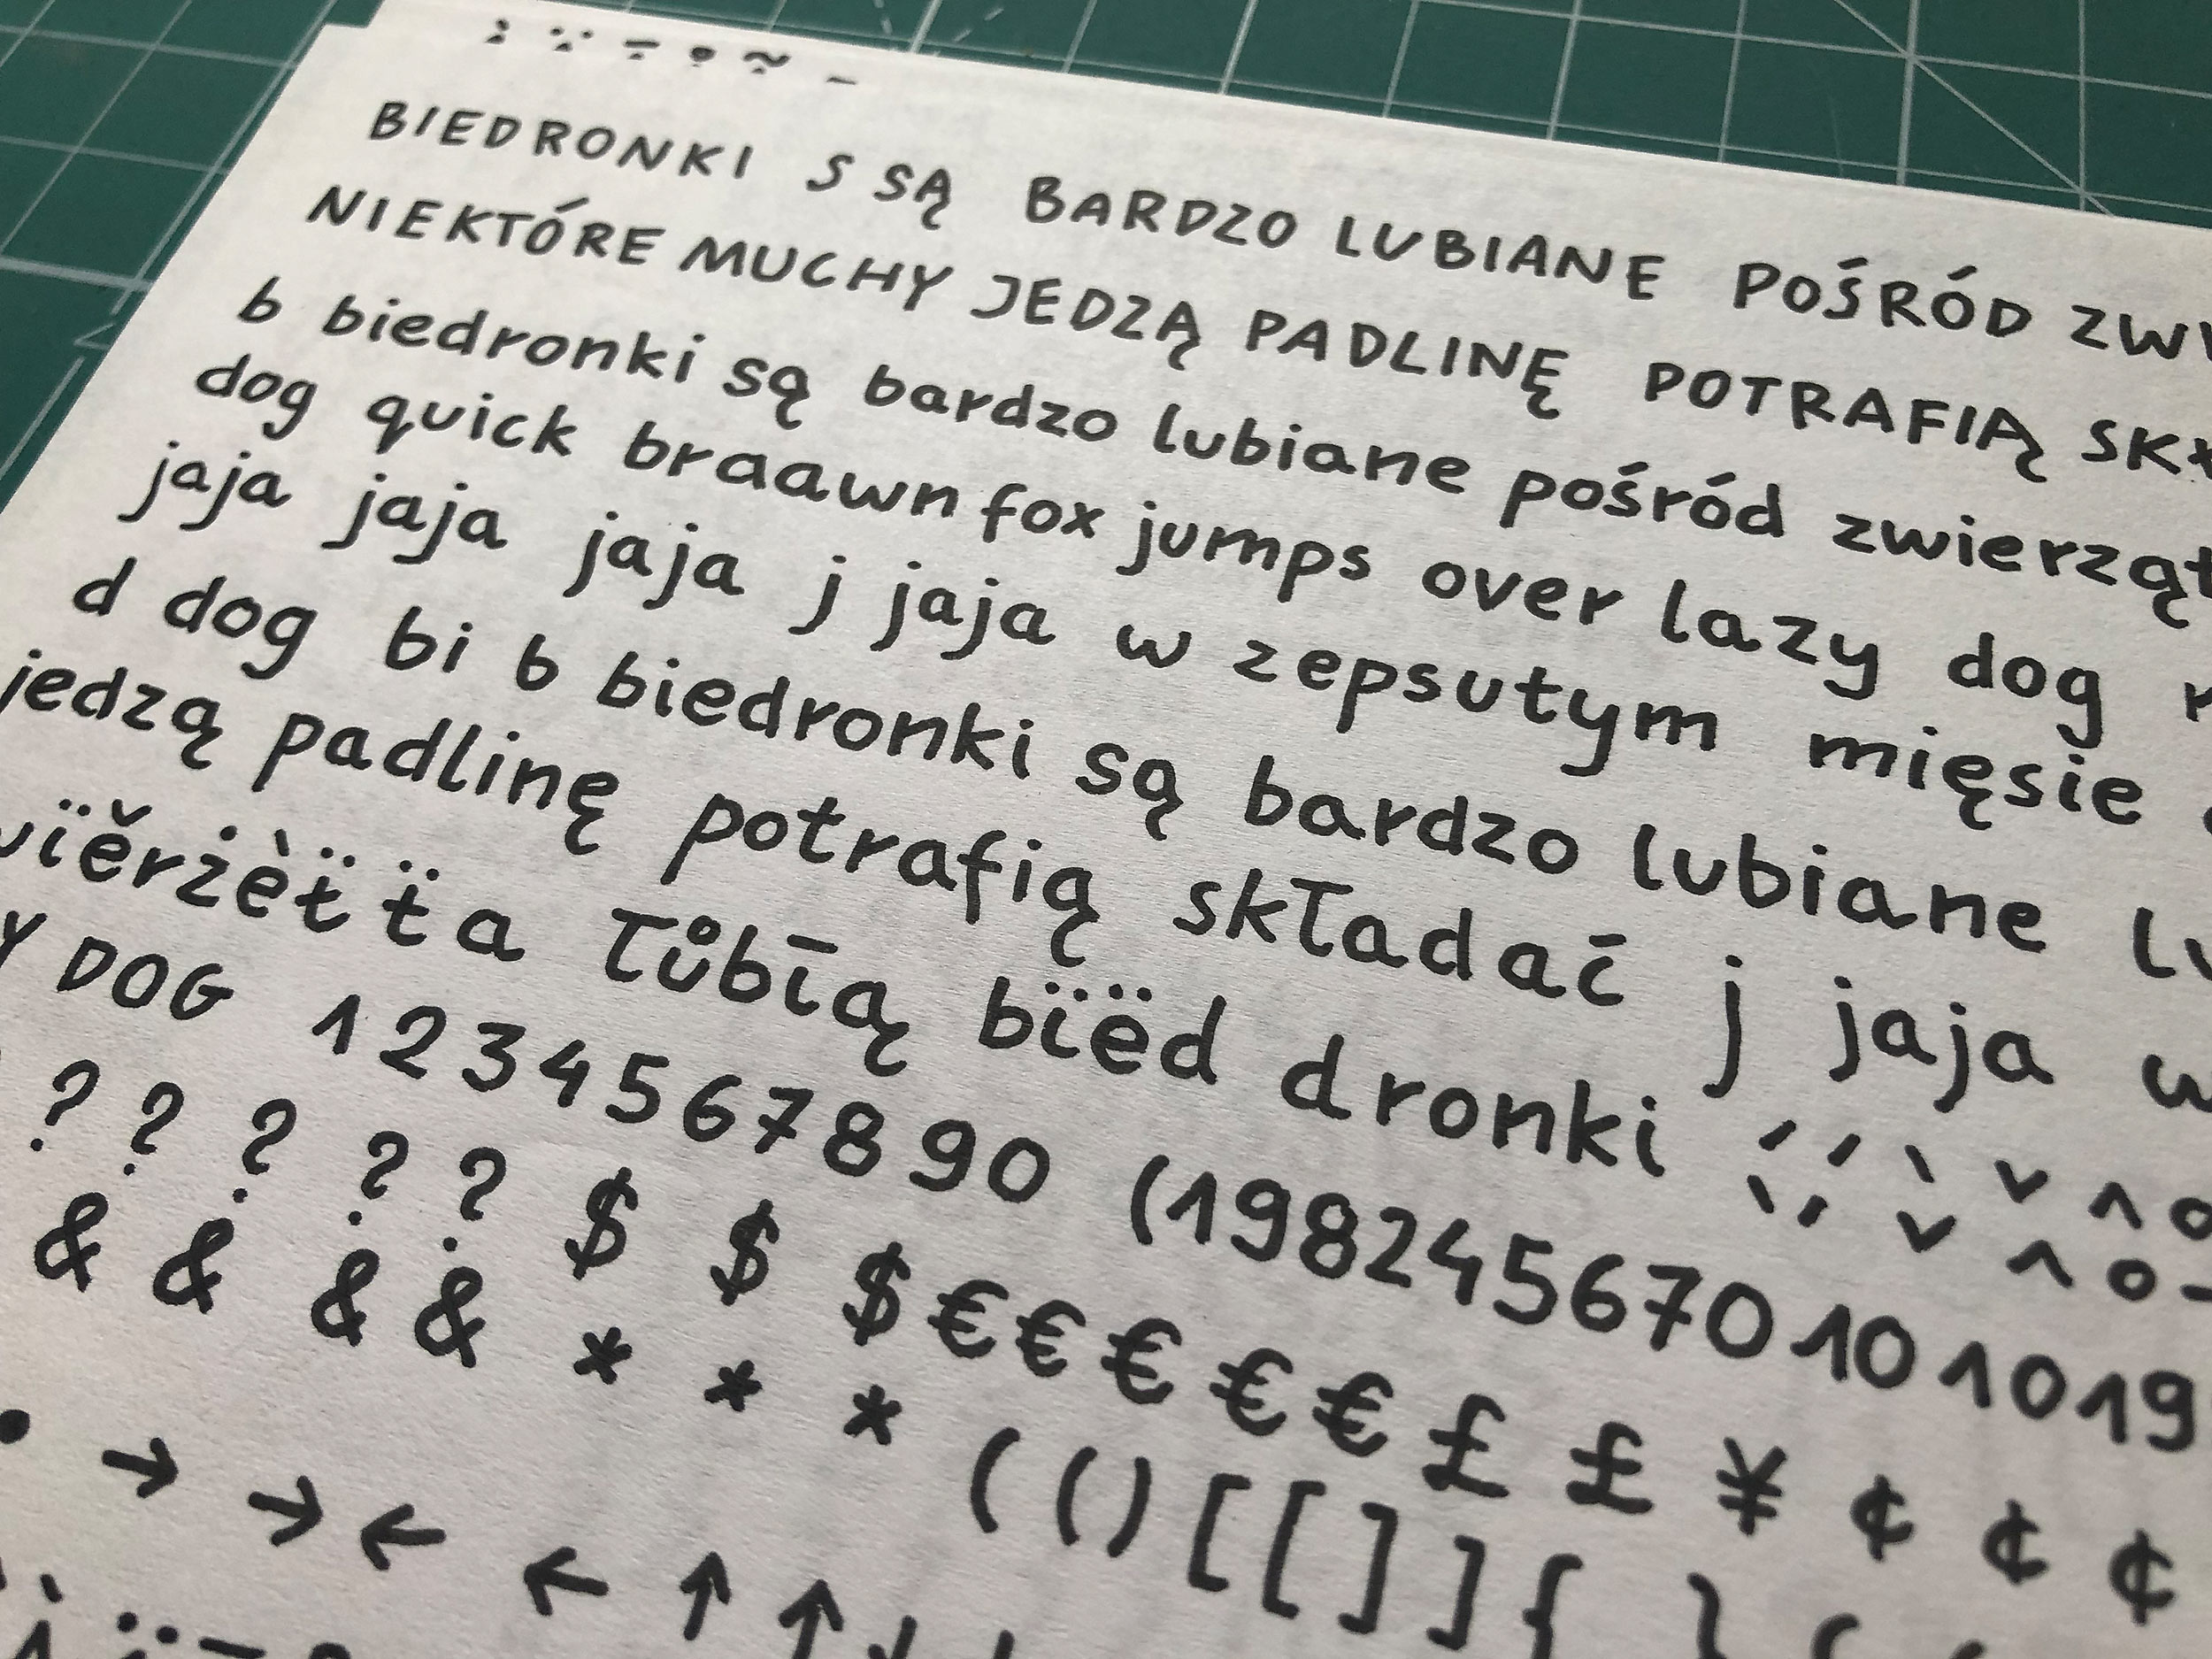 BIEDRONKI S SĄ BARDZO LUBIANE POŚRÓD
NIEKTÓRE MUCHY JEDZĄ PADLINĘ POTRAFIĄ
b biedronki są bardzo lubiane pośród zwierząt
dog quick braawn fox jumps over lazy dog
jaja jaja jaja j jaja w zepsutym mięsie
d dog bi b biedronki są bardzo lubiane
jedzą padlinę potrafią składać j jaja w
a bïëd dronki
Y DOG 1 2 3 4 5 6 7 8 9 0 (198245670 10 1019
? ? ? ? ? $ $ $ € € € € € £ £ ¥ ¢ ¢ ¢
& & & & * * * ( ( ) [ [ ] ] { }
• → → ← ← ↑ ↑